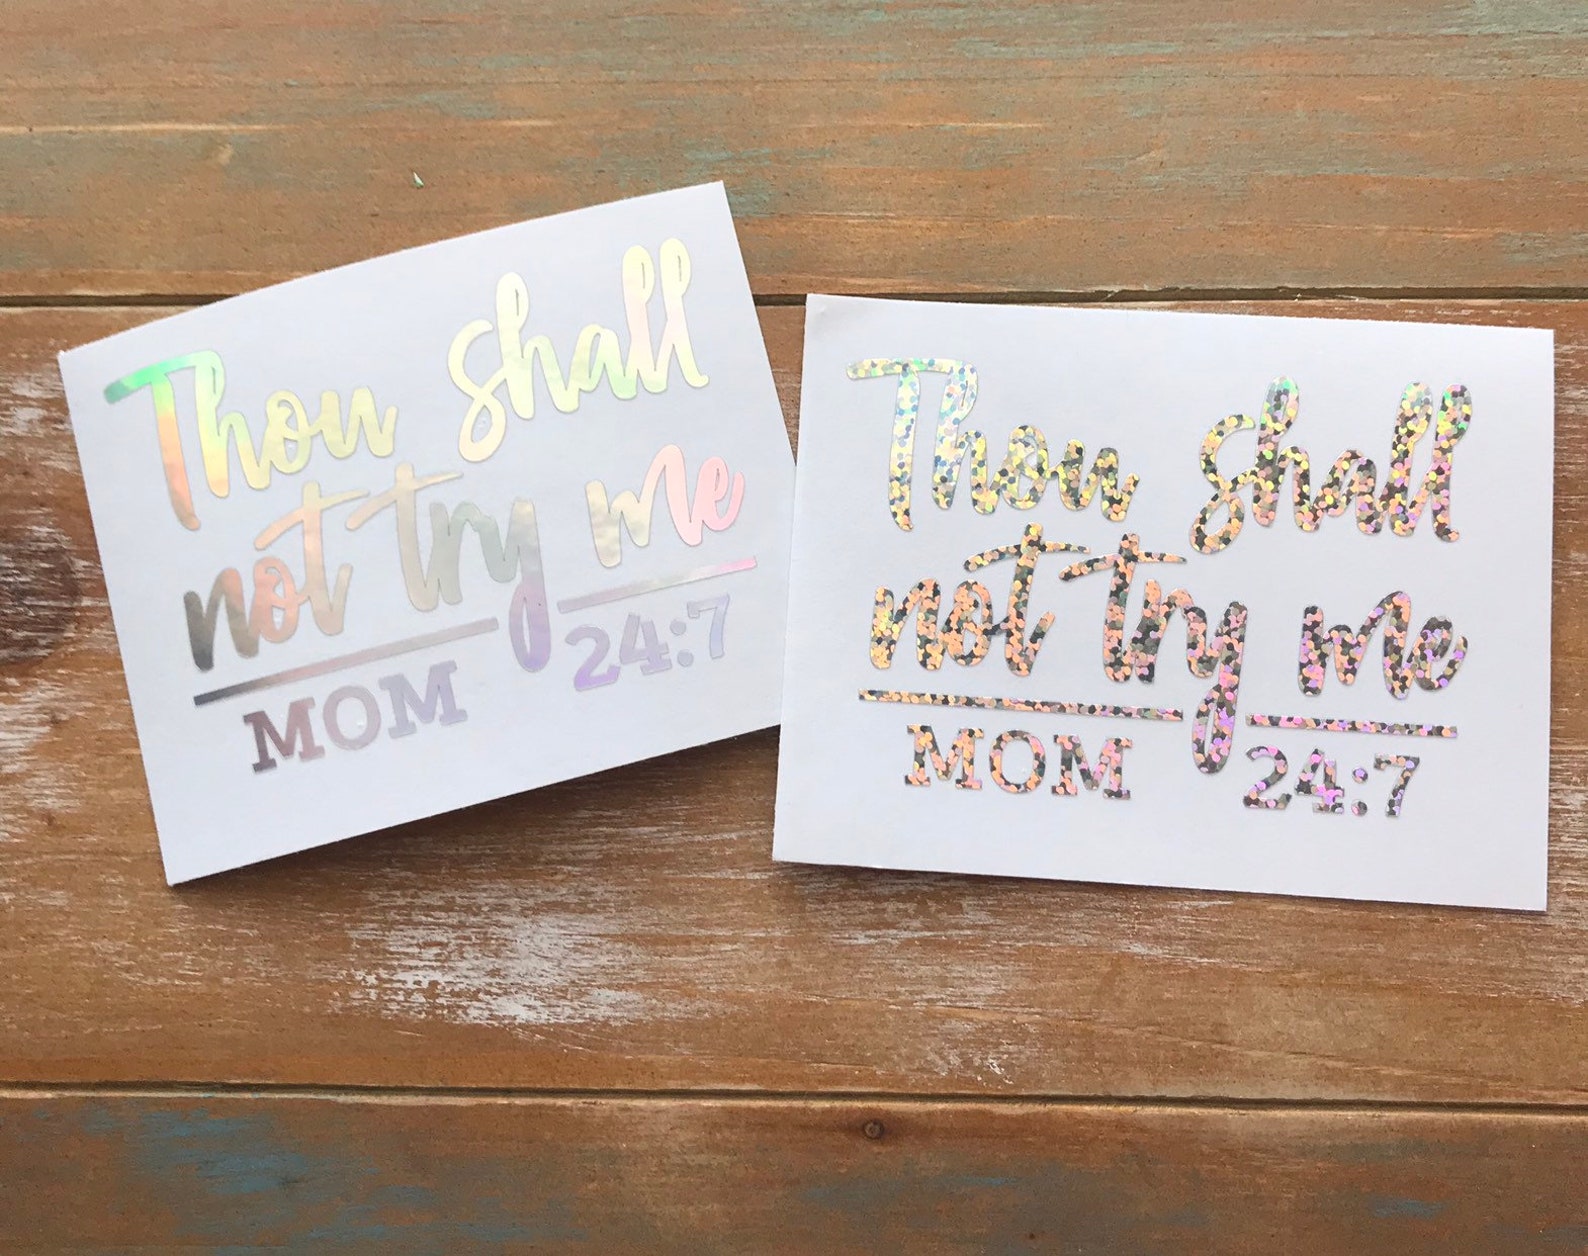 Thou shall
not try me
MOM 24:7
Thou shall
not try me
MOM 24:7